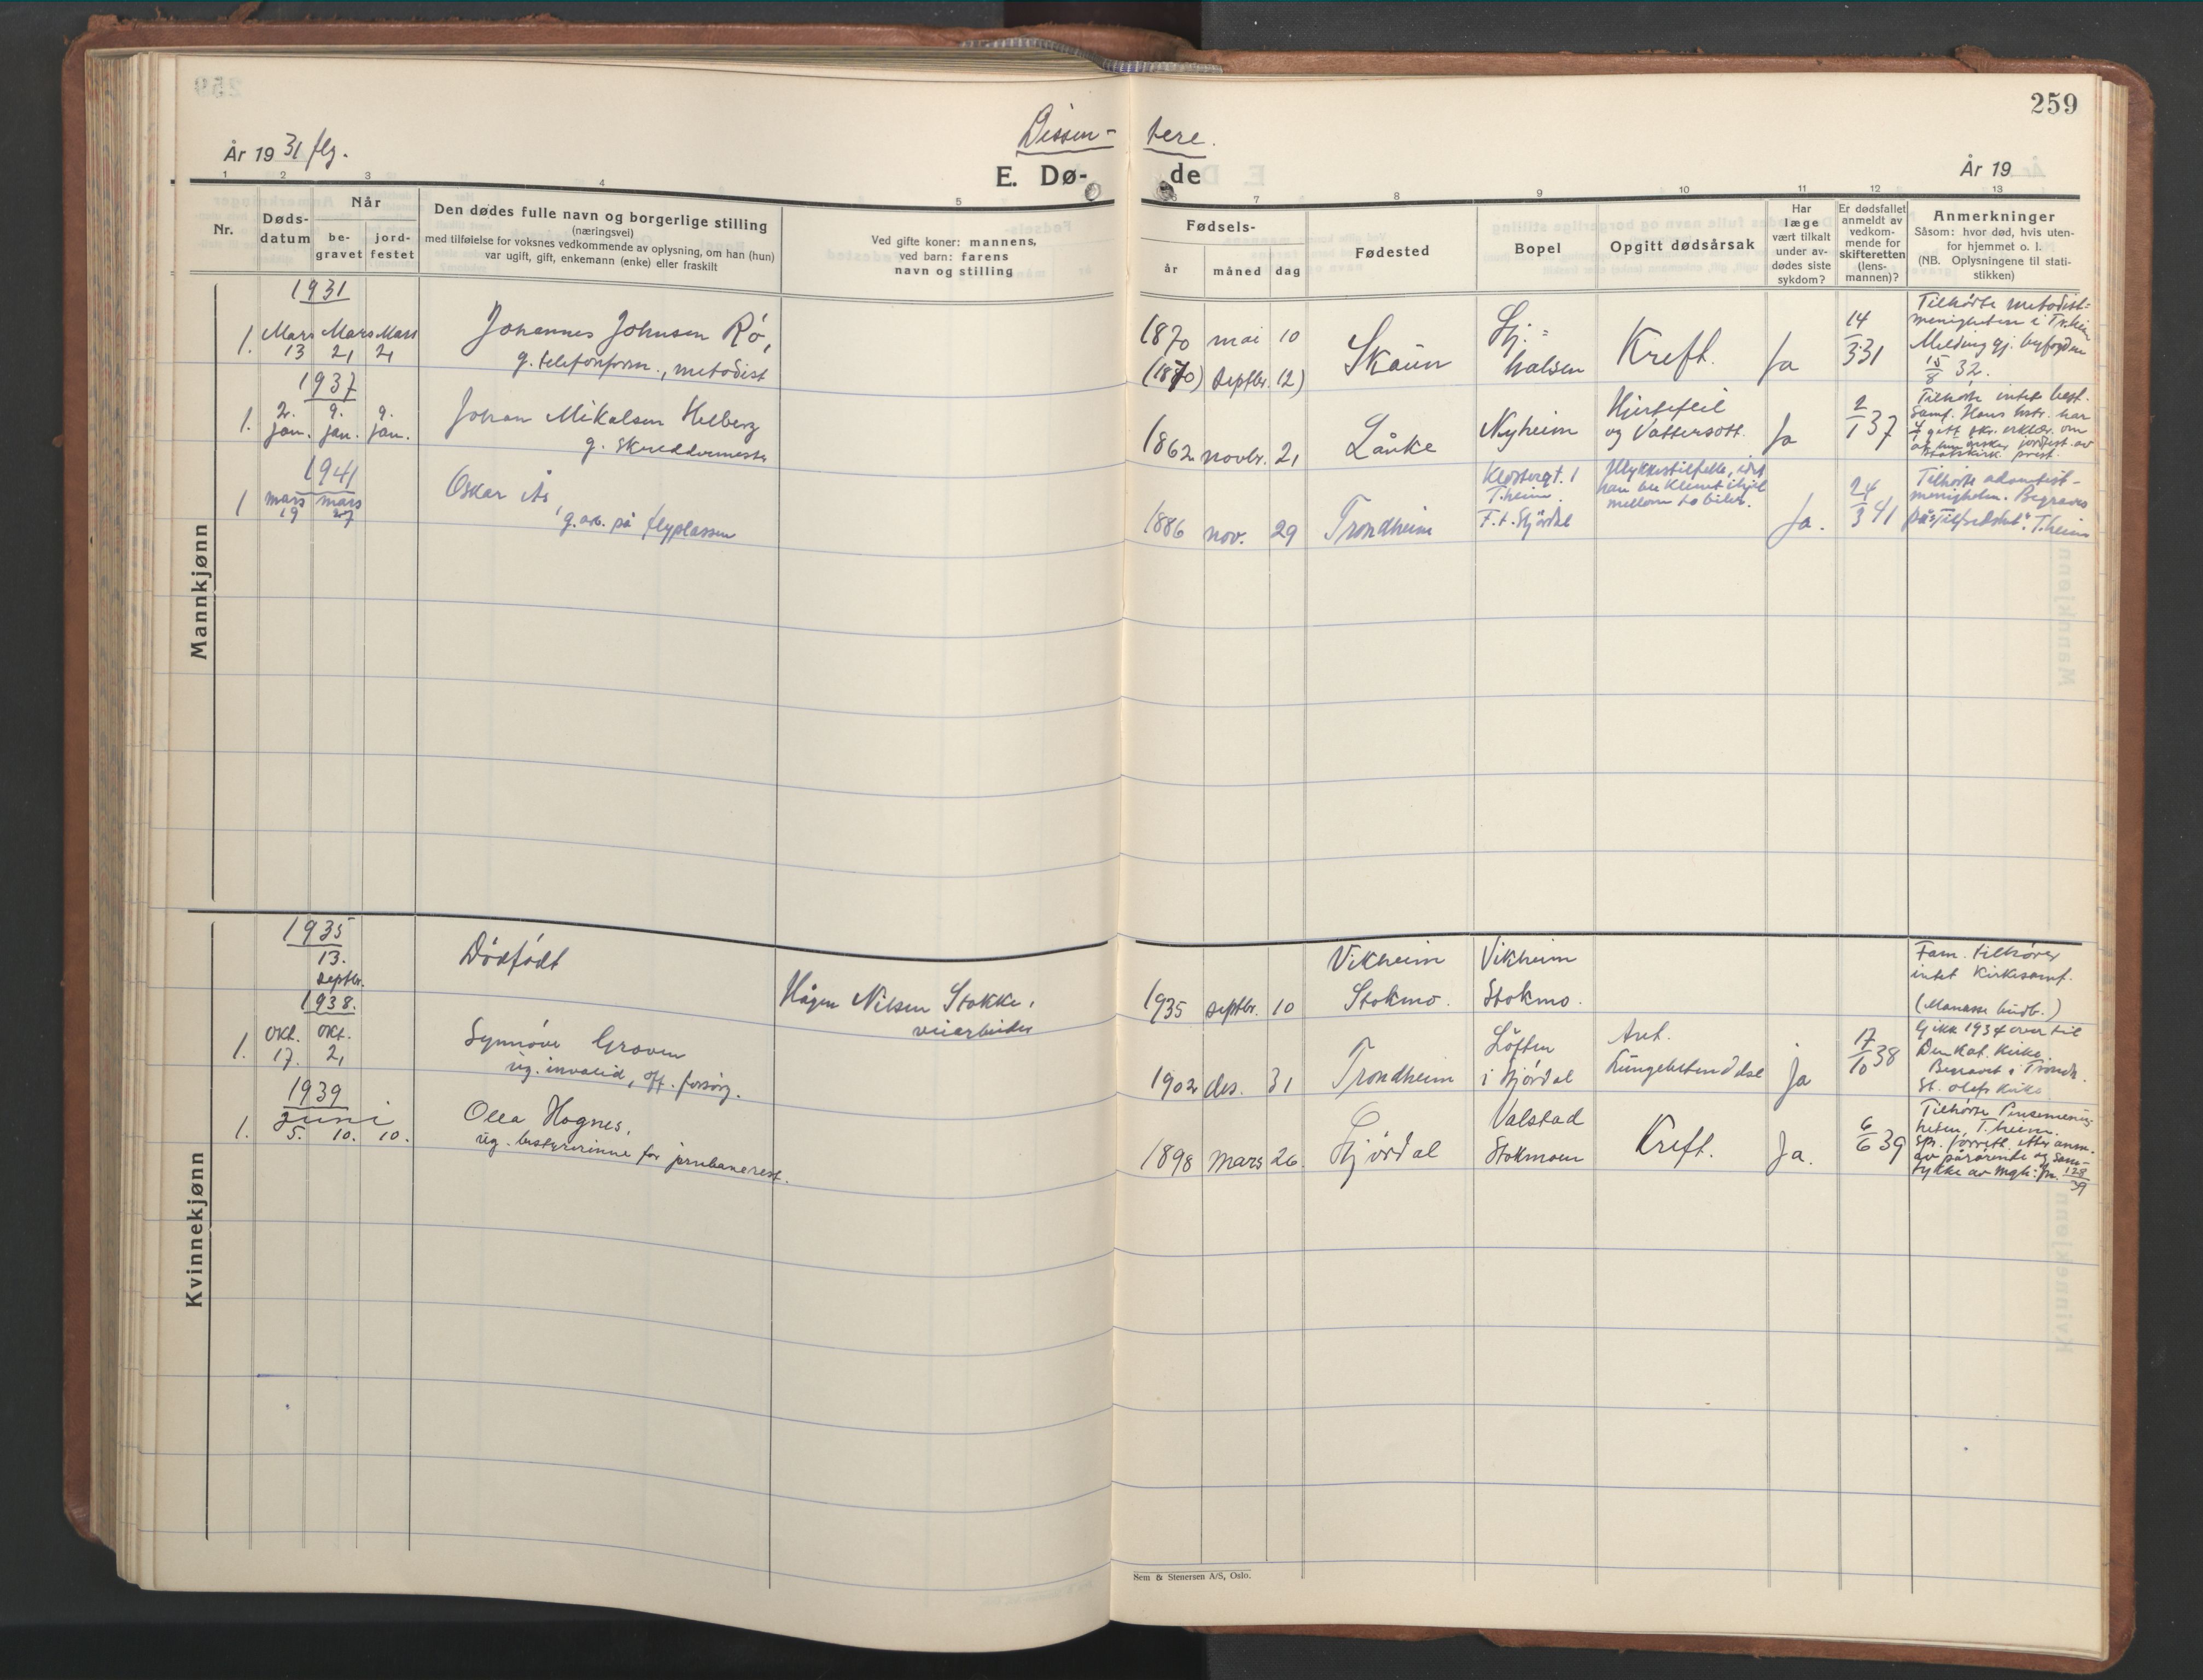 259
Dissen- tere.
År 1931 flg.
År 19
E. Dø- de
1 2 3 4 5 6 7 8 9 10 11 12 13
Nr.
Døds-
datum
Når
be-
gravet
jord-
festet
Den dødes fulle navn og borgerlige stilling
(næringsvei)
med tilføielse for voksnes vedkommende av oplysning, om han (hun)
var ugift, gift, enkemann (enke) eller fraskilt
Ved gifte koner: mannens,
ved barn: farens
navn og stilling
Fødsels-
år måned dag
Fødested
Bopel
Opgitt dødsårsak
Har
læge
vært tilkalt
under av-
dødes siste
sykdom?
Er dødsfallet
anmeldt av
vedkom-
mende for
skifteretten
(lens-
mannen)?
Anmerkninger
Såsom: hvor død, hvis uten-
for hjemmet o. l.
(NB. Oplysningene til stati-
stikken)
Mannkjønn
1931
1. Mars 13 Mars 21 Mars 21
Johannes Johnsen Rö,
g. telefonform., metodist
1870 mai 10
(1870) septbr. 12)
Skaun
Hj.=
halsen
Kreft.
Ja
14/3 31
Tilhörte metodist=
menigheten i Tr.heim
Melding gj. byfogden
15/8 32.
1937
1. 2. jan. 9. jan. 9. jan.
Johan Mikalsen Helberg
g. skreddermester
1862 novbr. 21
Lånke
Nyheim
Hjertefeil
og Vattersott.
Ja
2/1 37
Tilhörte intet best.
samf. Hans hstr. har
gitt skr. erklær. om
at hun ønsker jordfest. av
statskirk. prest.
1941
1 mars 19 mars 27
Oskar Ås,
g. arb. på flyplassen
1886 nov. 29
Trondheim
Klostergt. 1
T.heim.
F.t. Stjördal
Ulykkestilfelle, idet
han ble klemt ihjel
mellom to biler.
Ja.
24/3 41
Tilhörte adventist-
menigheten. Begraves
på "Tilfredshet". T.heim
Kvinnekjønn
1935
13.
septbr.
Dödfödt
Hågen Nilsen Stokke,
veiarbeider
1935 septbr. 10
Vikheim
Stokmo.
Vikheim
Stokmo.
Fam. tilhörer
intet kirkesamf.
1938.
1. okt. 17. okt. 21
Synnöve Graven
ug. invalid, off. forsörg.
1902 des. 31
Trondheim
Löften
i Stjördal
Aret.
Lungebetendelse
Ja
17/10 38
Gikk 1934 over til
Den kat. kirke.
Begravet i Trondh.
St. Olafs kirke
1939
Juni
1. 5. 10. 10.
Olea Hognes,
ug. bestyrerinne for jernbanerest.
1898 mars 26.
Stjördal
Valstad
Stokmoen
Kreft.
Ja.
6/6 39
Tilhörte Pinsemenig-
heten, T.heim.
Spr. forrett. etter anm.
av pårörende og sam-
tykke av mgh.
Sem & Stenersen A/S, Oslo.